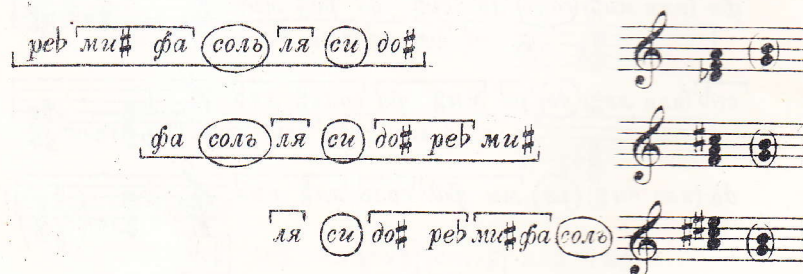 реb ми# фа соль ля си до#
фа соль ля си до# реb ми#
ля си до# реb ми# фа соль